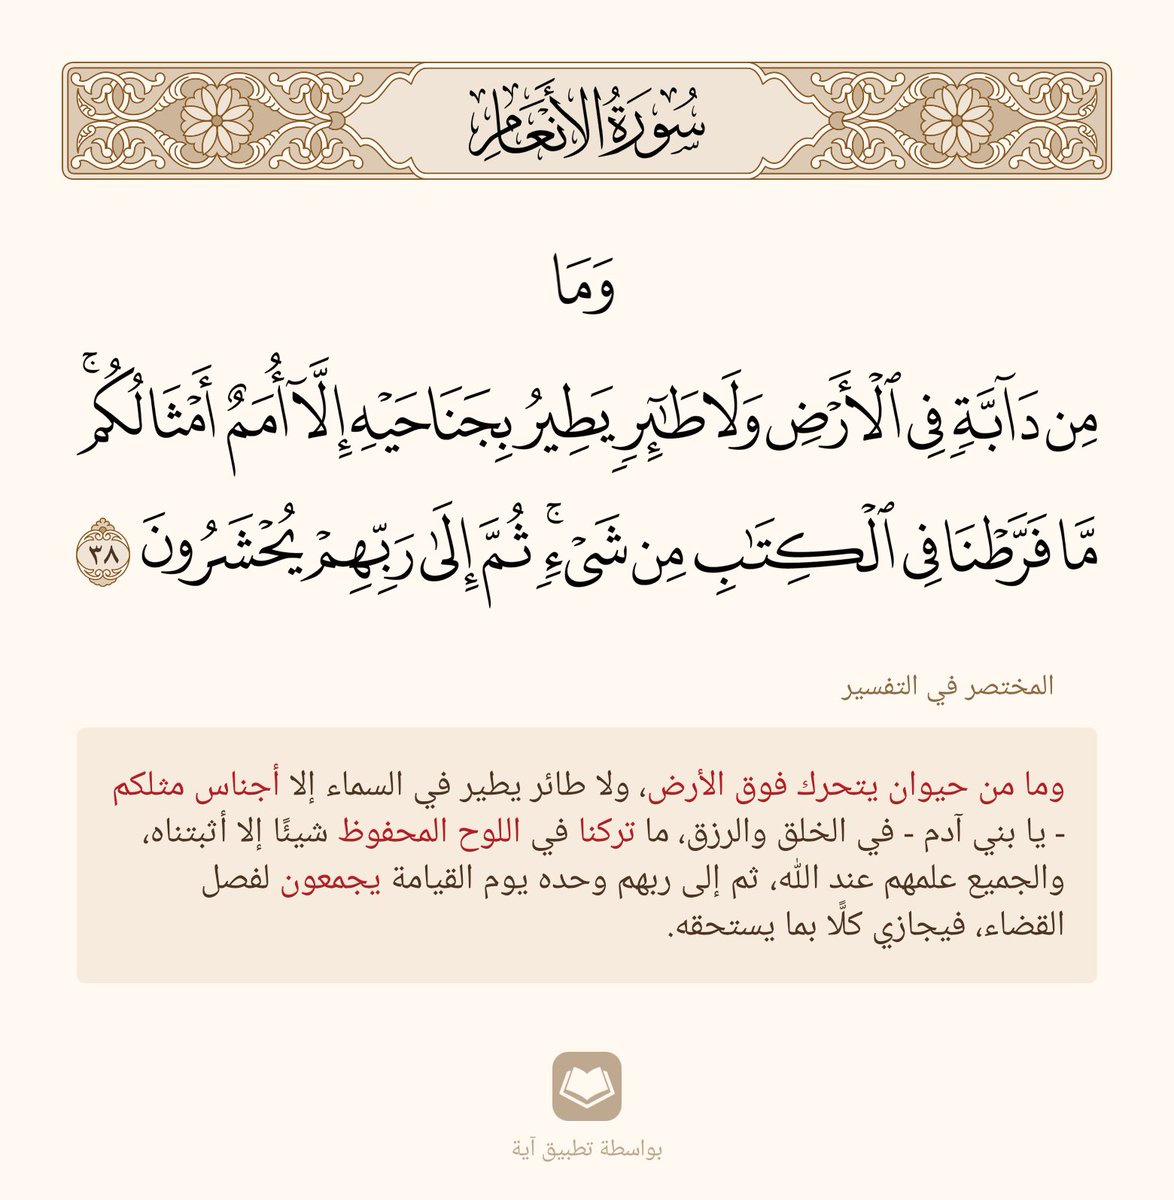 سُورَةُ الأَنْعَامِ
وَمَا
مِن دَآبَّةٖ فِي ٱلۡأَرۡضِ وَلَا طَٰٓئِرٖ يَطِيرُ بِجَنَاحَيۡهِ إِلَّآ أُمَمٌ أَمۡثَالُكُمۚ
مَّا فَرَّطۡنَا فِي ٱلۡكِتَٰبِ مِن شَيۡءٖۚ ثُمَّ إِلَىٰ رَبِّهِمۡ يُحۡشَرُونَ ٣٨
المختصر في التفسير
وما من حيوان يتحرك فوق الأرض، ولا طائر يطير في السماء إلا أجناس مثلكم
- يا بني آدم - في الخلق والرزق، ما تركنا في اللوح المحفوظ شيئًا إلا أثبتناه،
والجميع علمهم عند الله، ثم إلى ربهم وحده يوم القيامة يجمعون لفصل
القضاء، فيجازي كلًّا بما يستحقه.
بواسطة تطبيق آية